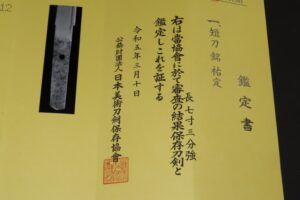 鑑定書
一、短刀 銘 祐定
長 七寸三分強
右は當協會に於て審査の結果保存刀剣と
鑑定しこれを証する
令和五年三月十日
公益財団法人日本美術刀剣保存協會
12